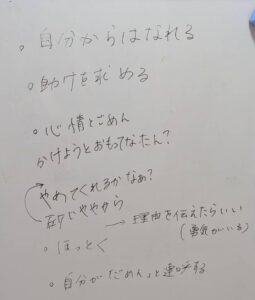 。自分からはなれる
。助けを求める
。心情とごめん
かけようとおもってなたん?
やめてくれるかなぁ?
やから
→ 理由を伝えたらいい
(勇気がいる)
。ほっとく
。自分がごめんっと連呼する